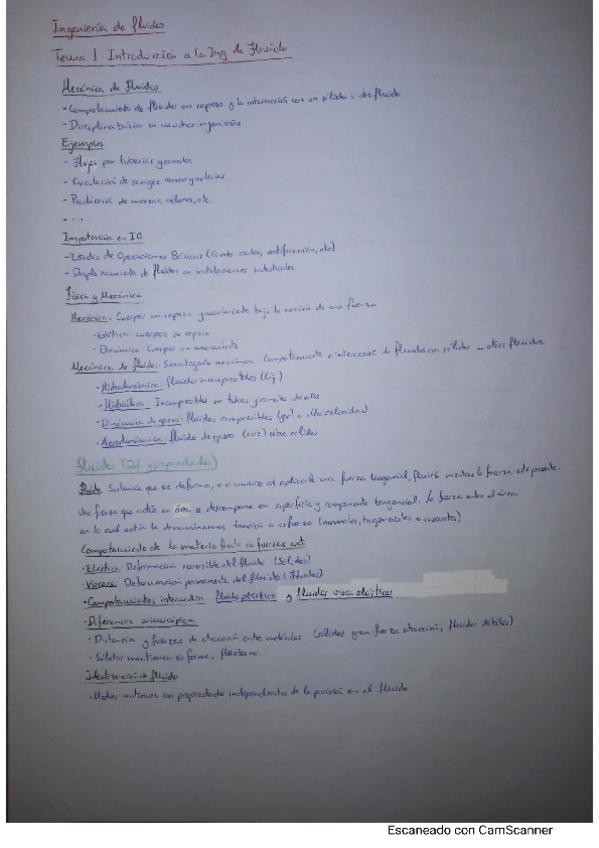 Ingeniería de fluidos
Tema 1: Introducción a la Ing de Fluidos
Mecánica de Fluidos
- Comportamiento de fluidos en reposo y la interacción con un sólido u otro fluido.
- Disciplina básica en muchas ingenierías
Ejemplos
- Flujo por tuberías y canales
- Circulación de sangre venas y arterias
- Predicción de mareas, ciclones, etc.
- ...
Importancia en IQ
- Estudio de Operaciones Básicas (Cambio calor, rectificación, etc)
- Desplazamiento de fluidos en instalaciones industriales
Física y Mecánica
Mecánica: Cuerpos en reposo y movimiento bajo la acción de una fuerza
- Estática: cuerpos en reposo
- Dinámica: Cuerpos en movimiento
Mecánica de fluidos: Subcategoría mecánica. Comportamiento e interacción de fluidos con sólidos u otros fluidos.
- Hidrodinámica: fluidos incompresibles (Líq)
- Hidráulica: Incompresibles en tubos y canales abiertos
- Dinámica de gases: fluidos compresibles (gas) a alta velocidad
- Aerodinámica: fluido de gases (aire) sobre sólidos
Fluido (Def y propiedades)
Fluido: Sustancia que se deforma, o se mueve al aplicarle una fuerza tangencial, fluirá mientras la fuerza esté presente.
Una fuerza que actúa en área se descompone en superficie y componente tangencial. La fuerza entre el área
en la cual actúa la denominamos tensión o esfuerzo (normales, tangenciales o rasantes)
Comportamiento de la materia frente a fuerzas ext.
- Elástico: Deformación reversible del fluido (Sólidos)
- Viscoso: Deformación permanente del fluido (Fluidos)
- Comportamientos intermedios fluido plástico y fluidos viscoelásticos
- Diferencia microscópica
- Distancia y fuerzas de atracción entre moléculas (sólidos gran fuerza atracción, fluidos débiles)
- Sólidos mantienen su forma, fluidos no.
Idealización de fluido
- Medios continuos con propiedades independientes de la posición en el fluido
Escaneado con CamScanner